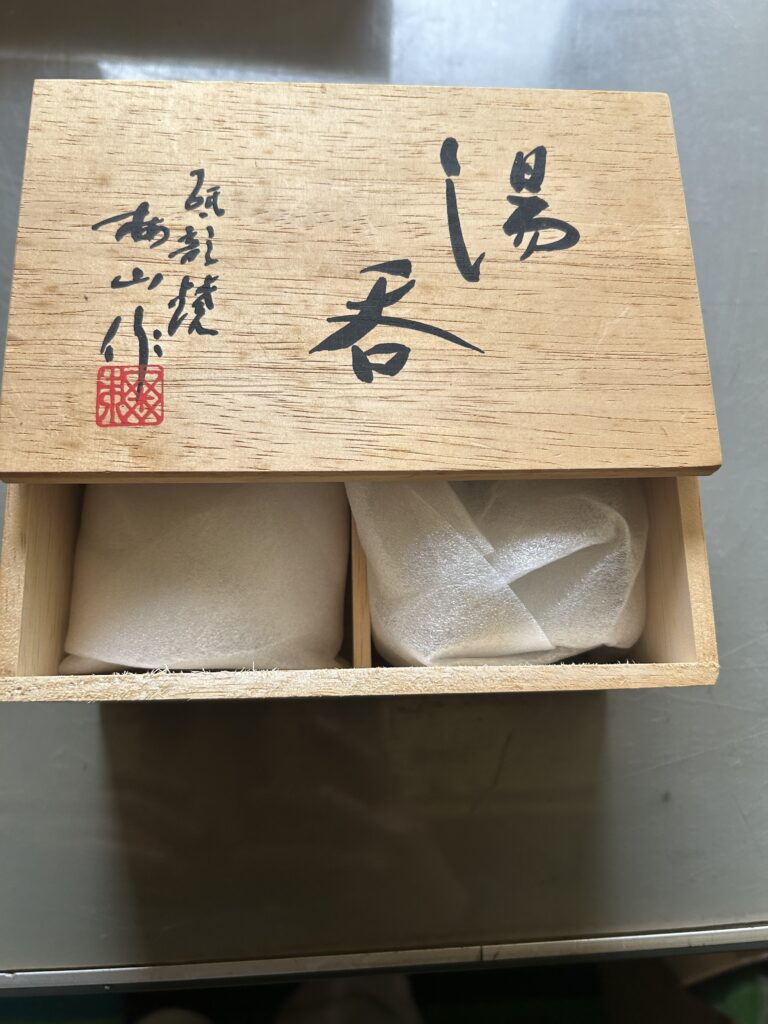 湯呑
砥部焼
梅山作